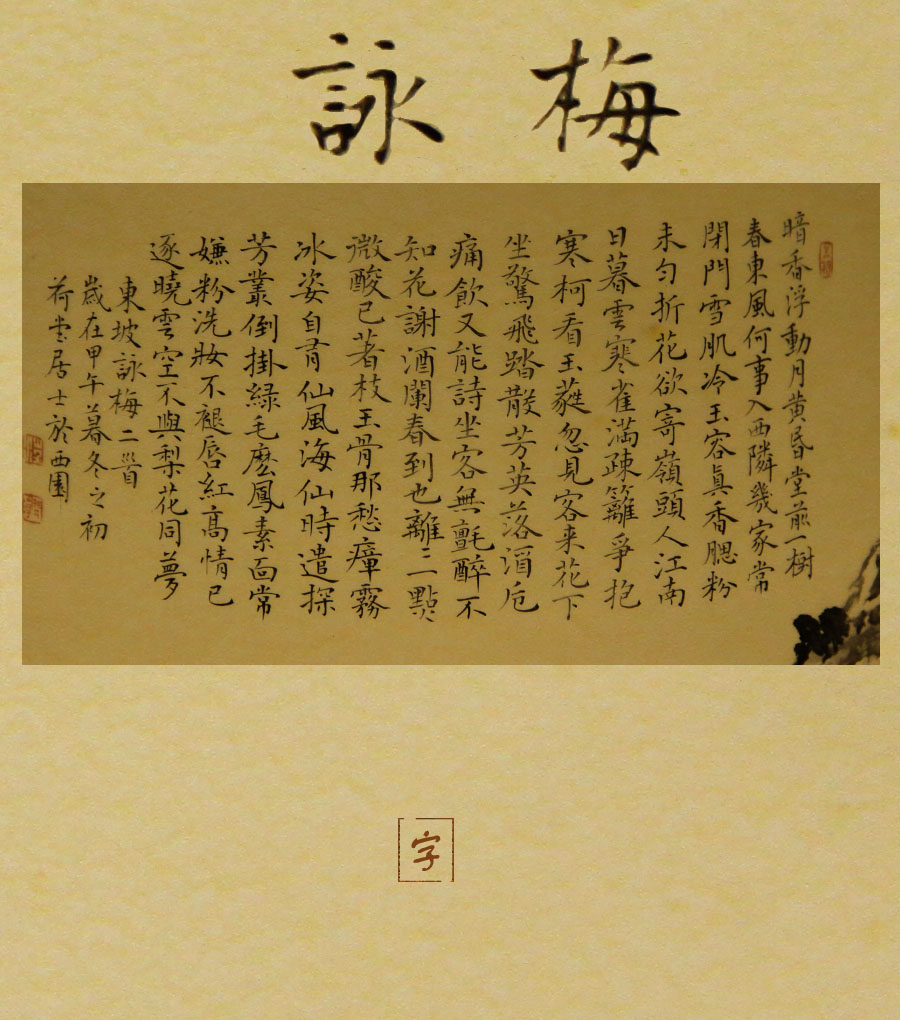 詠梅
暗香浮動月黄昏堂前一樹
春東風何事入西隣幾家常
閉門雪肌冷玉容眞香腮粉
未勻折花欲寄嶺頭人江南
日暮雲寒雀滿疎籬爭抱
寒柯看玉蕤忽見客来花下
坐驚飛踏散芳英落酒卮
痛飲又能詩坐客無氈醉不
知花謝酒闌春到也離二點
微酸已著枝玉骨那愁瘴霧
冰姿自有仙風海仙時遣探
芳叢倒掛緑毛麽鳳素面常
嫌粉洗妝不褪唇紅高情已
逐曉雲空不與梨花同夢
東坡詠梅二首
歲在甲午暮冬之初
荷堂居士於西園
字